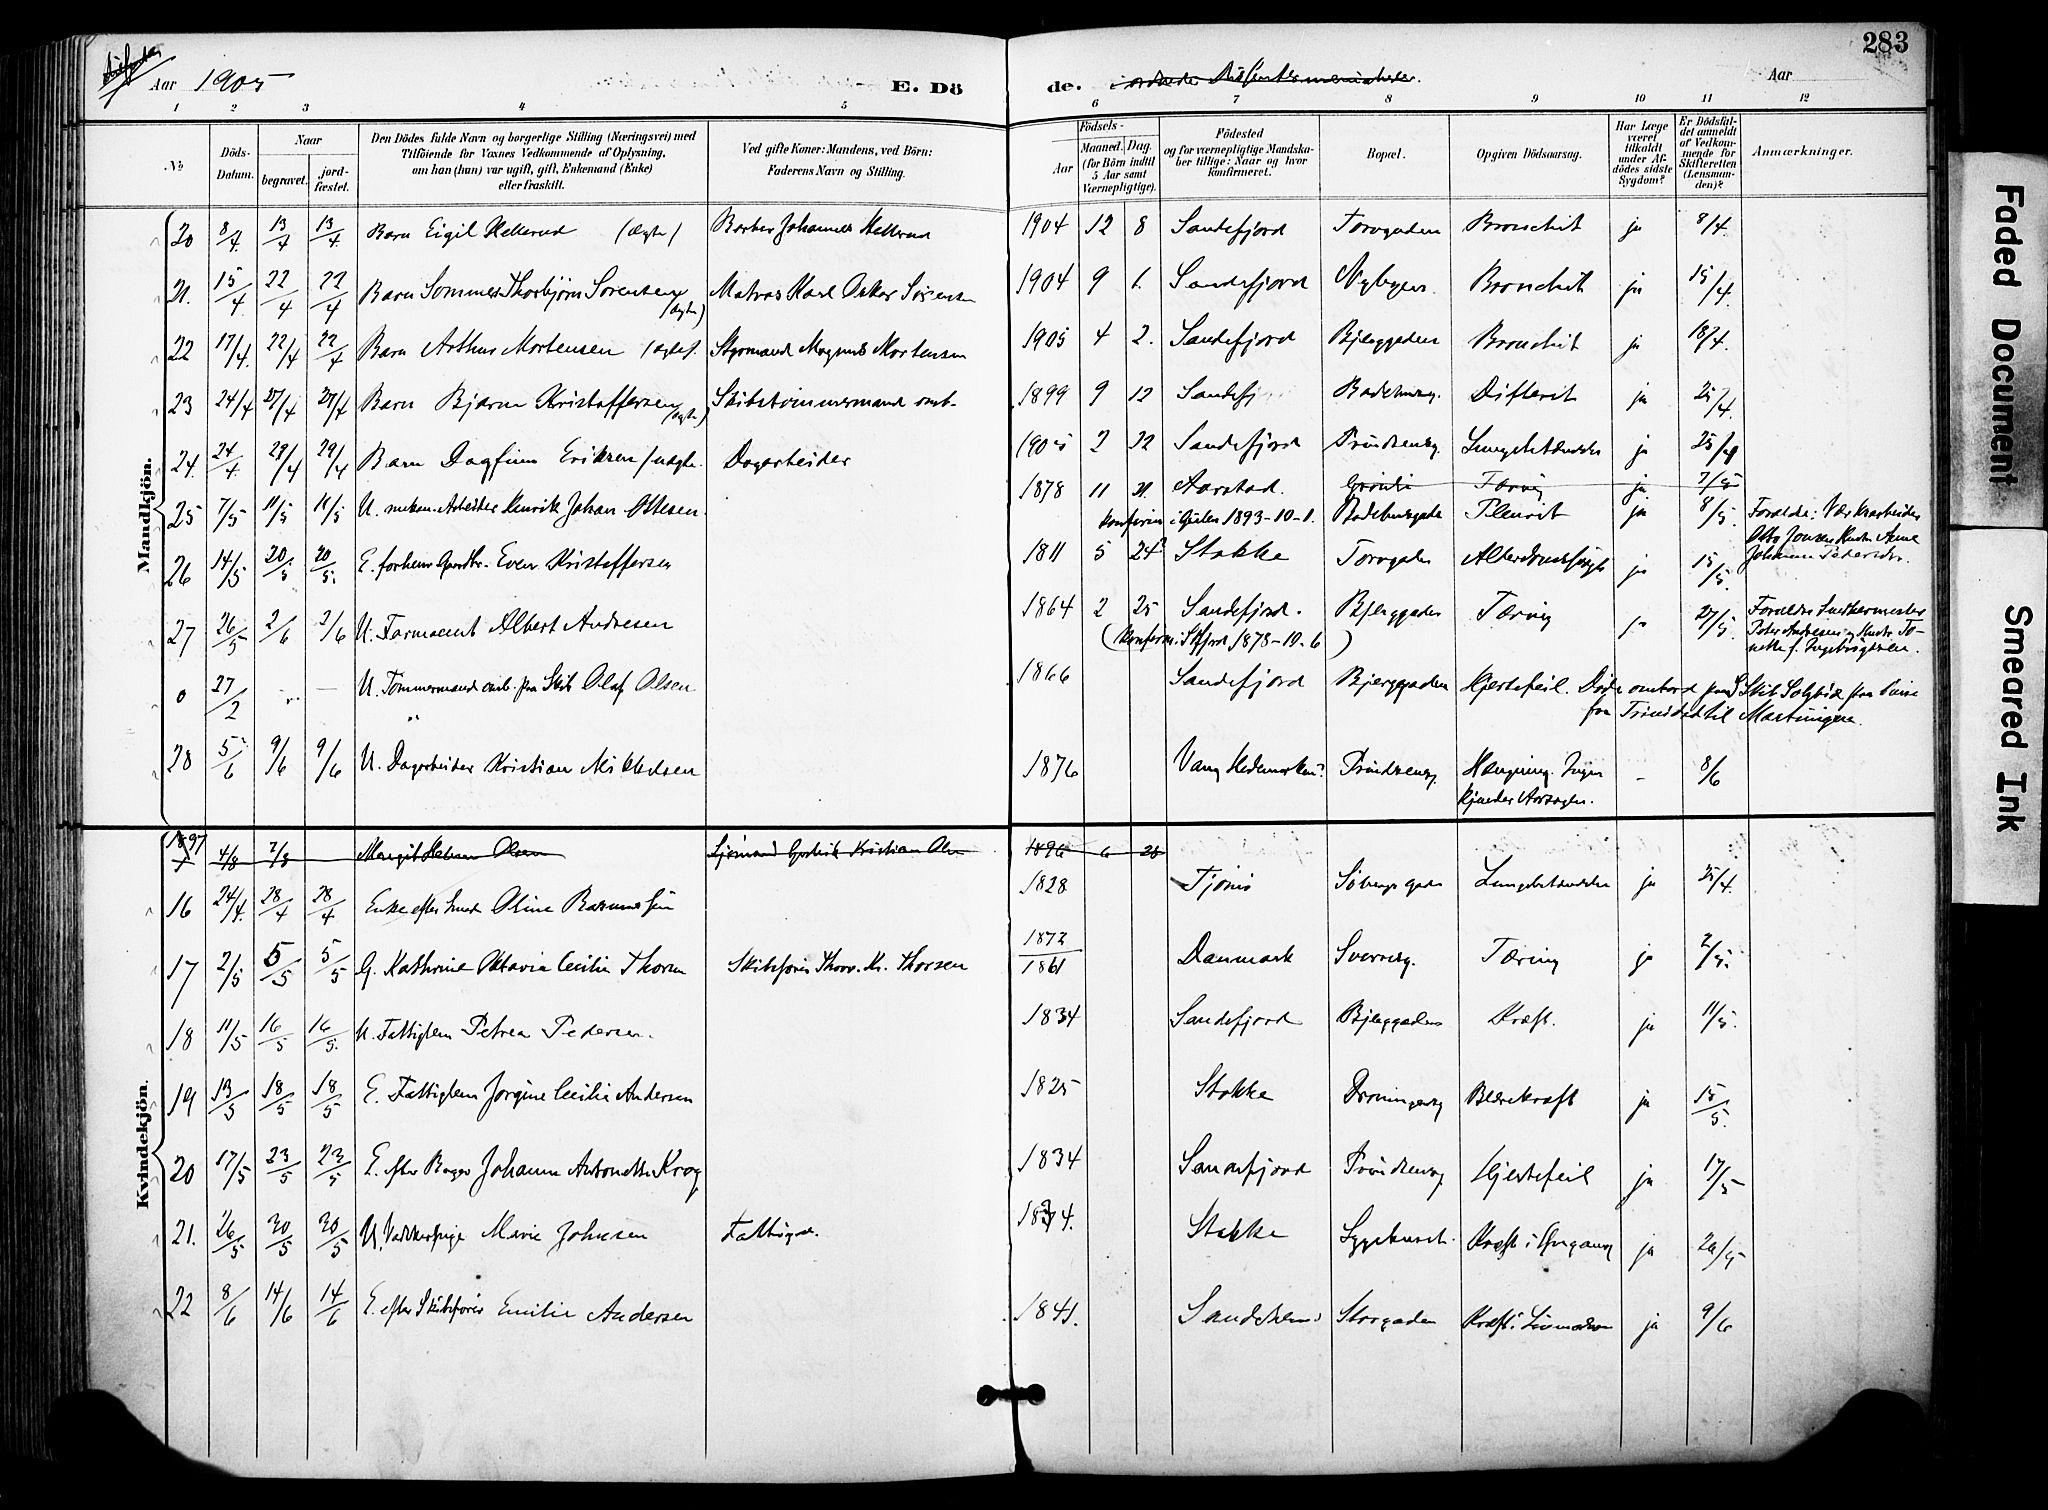 283
Aar 1905
E. Dö de.
Aar
1 2 3 4 5 6 7 8 9 10 11 12
No
Döds-Datum.
Naar
begravet.
jord-fæstet.
Den Dödes fulde Navn og borgerlige Stilling (Næringsvei) med
Tilföiende for Voxnes Vedkommende af Oplysning,
om han (hun) var ugift, gift, Enkemand (Enke)
eller fraskilt.
Ved gifte Koner: Mandens, ved Börn:
Faderens Navn og Stilling.
Aar
Födsels-
Maaned. Dag.
(for Börn indtil
5 Aar samt
Værnepligtige).
Födested
og for værnepligtige Mandska-
ber tillige: Naar og hvor
konfirmeret.
Bopæl.
Opgiven Dödsaarsag.
Har Læge
været
tilkaldt
under Af-
dödes sidste
Sygdom?
Er Dödsfal-
det anmeldt
af Vedkom-
mende for
Skifteretten
(Lensman-
den)?
Anmærkninger.
Mandkjön.
20 8/4 13/4 13/4 Barn Eigil Hellerud (ægte) Barber Johannes Hellerud 1904 12 8 Sandefjord Torvgaden Bronchit ja 8/4.
21. 15/4 22/4 22/4 Barn Sommer Thorbjørn Sørensen (ægte) Matros Karl Oskar Sørensen 1904 9 1. Sandefjord Bronchit ja 15/4.
22 17/4. 22/4 22/4 Barn Arthur Mortensen (ægte). Styrmand Magnus Mortensen 1905 4 2. Sandefjord Bjerggaden Bronchit ja 18/4.
23 24/4 27/4 27/4 Barn Bjarne Kristoffersen (ægte) Skibstømmermand 1899 9 12 Sandefj Difterit ja 25/4.
24. 24/4 29/4 29/4 Barn Dagfinn Eriksen Dagarbeider 1905 2 22 Sandefjord Prindsensg. Lungebetændelse ja 25/4
25 7/5 11/5 11/5 U. Arbeider Henrik Johan Ottesen. 1878 11 21. Aarstad. Tæring ja 7/5
konfirm. 1893-10-1. Badehusgaden Pleurit ja 8/5. Forældre:
Otto Jonsen Hustru Anne
26 14/5 20/5 20/5. E. forhenv. Gaardbr. Even Kristoffersen 1811 5 24 Stokke Torvgaden Alderdomssvaghed ja 15/5. Johanne Pedersdtr.
27 26/5 2/6 2/6 U. Farmaceut Albert Andresen 1864 2 25 Sandefjord. Bjerggaden Tæring ja 27/5. Forældre Snedkermester
(Konfirm. i S.fjord 1878-10-6) Peter Andresen og Hustru
f. Ingebrigtsen.
0 27/2 U. Tømmermand omb. paa Skib Olaf Olsen 1866 Sandefjord Bjerggaden Hjertefeil. Døde ombord paa Skib
fra Trinidad til Martinique.
28 5/6 9/6 9/6 U. Dagarbeider Kristian Mikkelsen 1876 Vang Hedemarken. Prindsensg. Hængning. Ingen – 8/6
kjendte Aarsager.
Kvindekjön.
1897 4/8 7/8 Margit Helene Olsen Sjømand Kristian Olsen 1896 6 28
16 24/4. 28/4 28/4 Enke efter Smed Oline Rasmussen 1828 Tjømø Lungebetændelse ja 25/4.
17 2/5 5/5 5/5 G. Kathrine Oktavia Cecilie Thorsen Skibsfører Thorv. Kr. Thorsen 1872 1861 Danmark Tæring ja 2/5.
18 11/5 16/5 16/5. U. Fattiglem Petrea Pedersen. 1834 Sandefjord Bjerggaden Kræft. ja 11/5.
19 13/5 18/5 18/5 E. Fattiglem Jørgine Cecilie Andersen 1825 Stokke Dronningensg Blærekræft ja 15/5.
20 17/5 23/5 23/5 E. efter Bager Johanne Antonette Krog 1834 Sandefjord Prindsensg Hjertefeil ja 17/5
21. 26/5 30/5 30/5 U. Vaskerpige Marie Johnsen Fattigv. Stokke Sygehuset. ja
22 8/6 14/6 14/6 E. efter Skibsfører Emilie Andersen 1841. Sandeherred Storgaden Kræft i Livmoderen ja 9/6
Faded Document
Smeared Ink